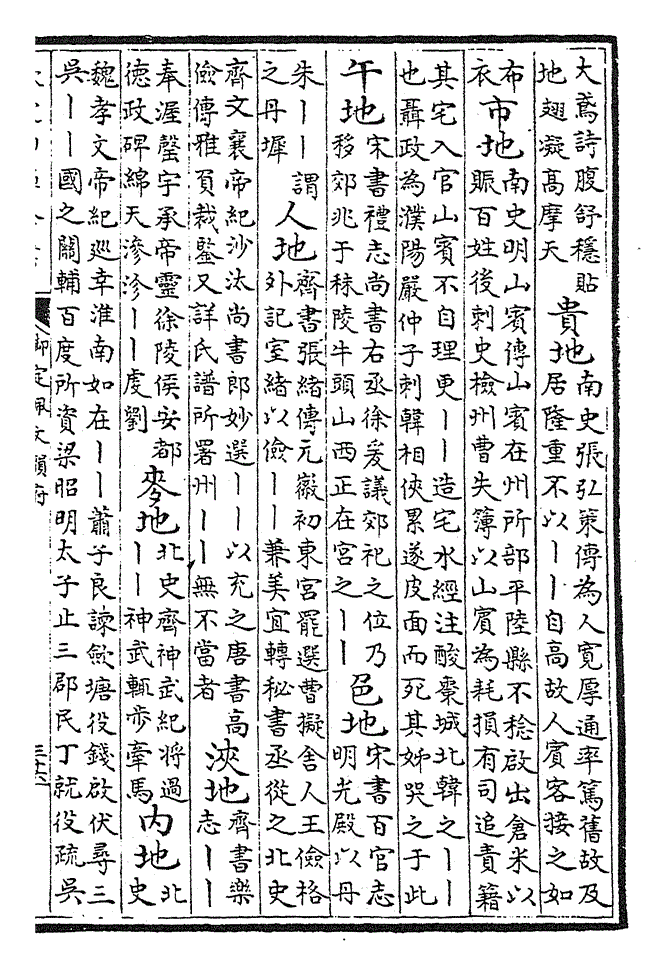 大鳶詩腹舒穩貼
地翅凝髙摩天
貴地
南史張弘策傳為人寛厚通率篤舊故及
居隆重不以丨丨自髙故人賓客接之如
布
衣
市地
南史明山賓傳山賓在州所部平陸縣不稔啟出倉米以
賑百姓後刺史檢州曹失簿以山賓為耗損有司追責籍
其宅入官山賓不自理更丨丨造宅水經注酸棗城北韓之丨丨
也聶政為濮陽嚴仲子刺韓相俠累遂皮面而死其姊哭之于此
午地
宋書禮志尚書右丞徐爰議郊祀之位乃
移郊兆于秣陵牛頭山西正在宮之丨丨
邑地
宋書百官志
明光殿以丹
朱丨丨謂
之丹墀
人地
齊書張緒傳元徽初東宮罷選曹擬舍人王儉格
外記室緒以儉丨丨兼美宜轉秘書丞從之北史
齊文襄帝紀沙汰尚書郎妙選丨丨以充之唐書高
儉傳雅負裁鑒又詳氏譜所署州丨丨無不當者
浹地
齊書樂
志丨丨
奉渥罄宇承帝靈徐陵侯安都
德政碑綿天滲沴丨丨虔劉
麥地
北史齊神武紀將過
丨丨神武輒步牽馬
内地
北
史
魏孝文帝紀廵幸淮南如在丨丨蕭子良諫歛塘役錢啟伏尋三
吳丨丨國之關輔百度所資梁昭明太子止三郡民丁就役疏吳
御定佩文韻府